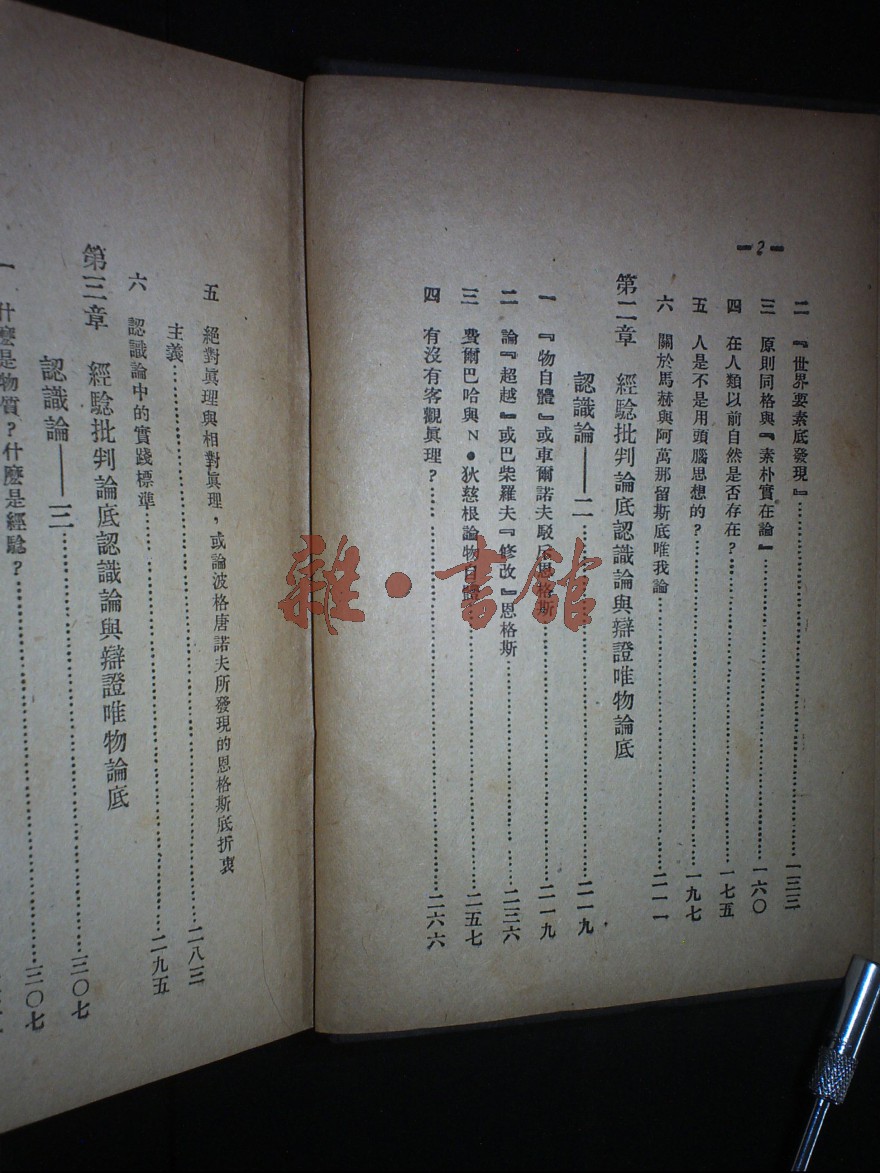 =2=
二 『世界要素底發現』…………一三三
三 原則同格與『素朴實在論』…………一六〇
四 在人類以前自然是否存在？…………一七五
五 人是不是用頭腦思想的？…………一九七
六 關於馬赫與阿萬那留斯底唯我論…………二一一
第二章 經驗批判論底認識論與辯證唯物論底
認識論——二…………二一九
一 『物自體』或車爾諾夫駁斥恩格斯…………二一九
二 論『超越』或巴柴羅夫『修改』恩格斯…………二三六
三 費爾巴哈與N●狄慈根論物自體…………二五七
四 有沒有客觀眞理？…………二六六
五 絕對眞理與相對眞理，或論波格唐諾夫所發現的恩格斯底折衷
主義…………二八三
六 認識論中的實踐標準…………二九五
第三章 經驗批判論底認識論與辯證唯物論底
認識論——三…………三〇七
一 什麼是物質？什麼是經驗？…………三〇七
雜·書館